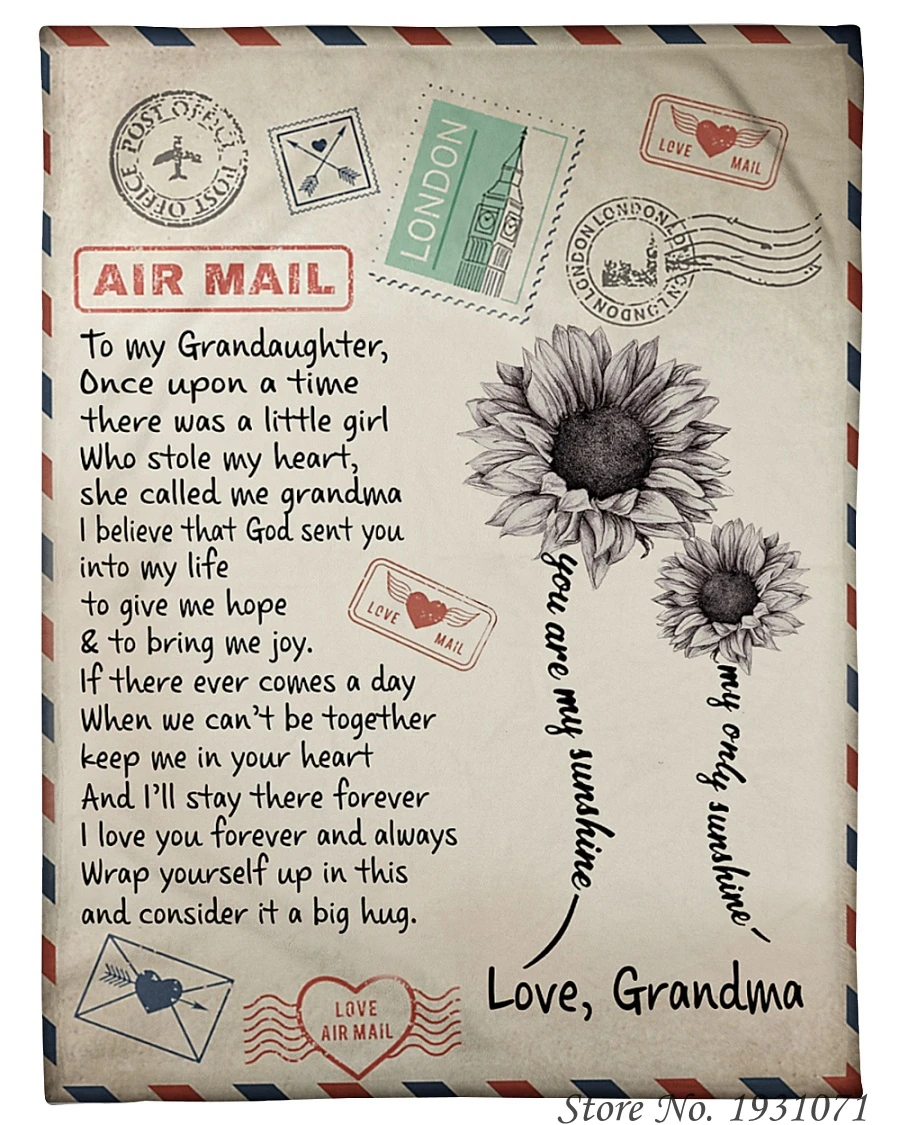 POST OFFICE POST OFFICE
LONDON
LOVE MAIL
LONDON LONDON LONDON LONDON
AIR MAIL
To my Grandaughter,
Once upon a time
there was a little girl
Who stole my heart,
she called me grandma
I believe that God sent you
into my life
to give me hope
& to bring me joy.
If there ever comes a day
When we can't be together
keep me in your heart
And I'll stay there forever
I love you forever and always
Wrap yourself up in this
and consider it a big hug.
LOVE MAIL
you are my sunshine
my only sunshine
Love, Grandma
LOVE
AIR MAIL
Store No. 1931071